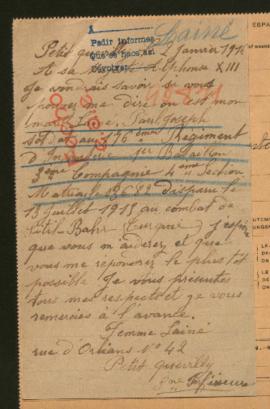 Lainé
Pedir informes
Petit quevilly 2 Janvier 191
A sa Alphonse XIII
Je voudrais savoir si vous
pouvez me dire ou est mon
mari Lainé, Paul Joseph
soldat au 176 ème Régiment
d'Infanterie 1er Bataillon
3ème Compagnie 4ème Section
Matricule disparu le
13 juillet 1915 au combat de
Turquie J'espère
que vous m'aiderez et que
vous me reponserez le plus tôt
possible Je vous présentes
tous mes respects et je vous
remercies à l'avance.
Femme Lainé
rue d'Orléans No 42
Petit quevilly
Sne Inférieure